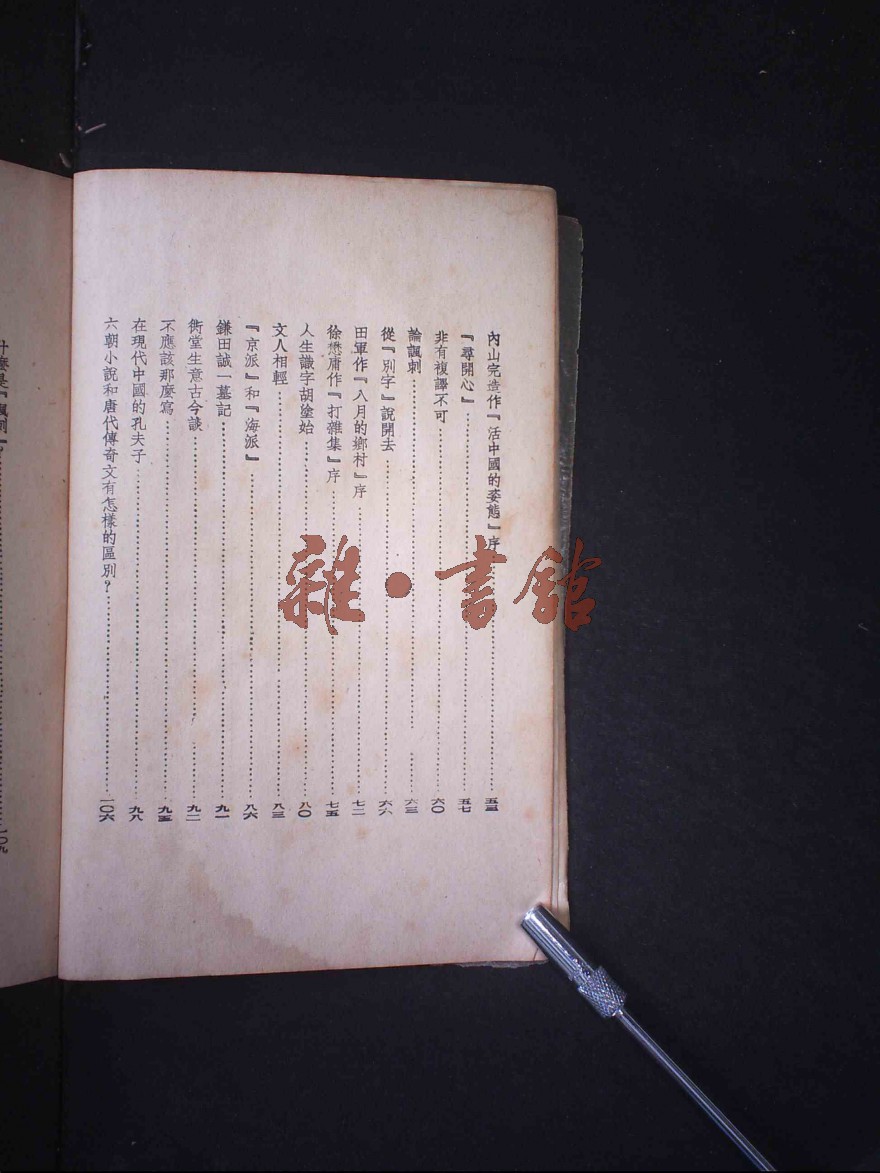 內山完造作『活中國的姿態』序……五三
『尋開心』……五七
非有複譯不可……六〇
論諷刺……六三
從『別字』說開去……六六
田軍作『八月的鄉村』序……七二
徐懋庸作『打雜集』序……七五
人生識字胡塗始……八〇
文人相輕……八三
『京派』和『海派』……八六
鎌田誠一墓記……九一
衖堂生意古今談……九二
不應該那麼寫……九五
在現代中國的孔夫子……九八
六朝小說和唐代傳奇文有怎樣的區別？……一〇六
什麼是『諷刺』？……一〇九
雜·書館